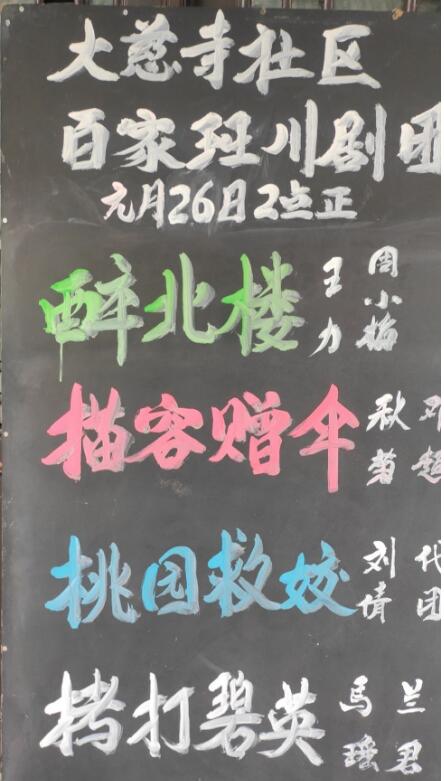 大慈寺社区
百家班川剧团
元月26日2点正
醉北楼 王力 周小梅
描容赠伞 秋菊 邓超
桃园救姣 刘倩 代团
拷打碧英 馬瑶 兰君